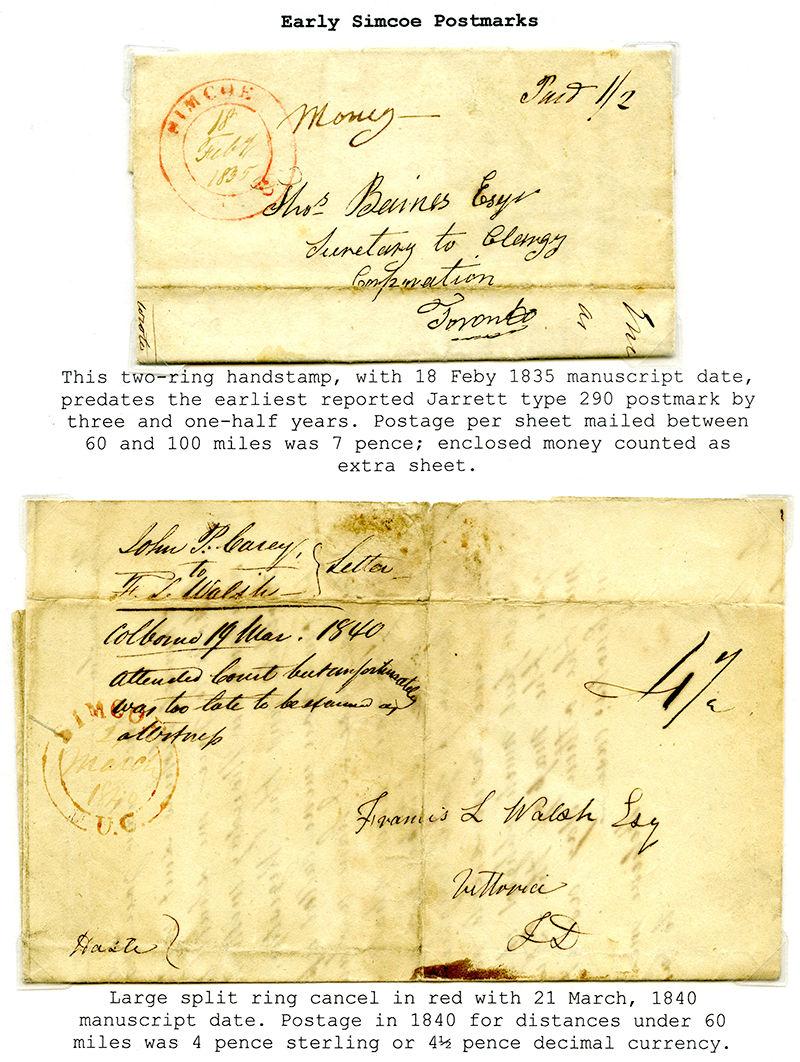 Early Simcoe Postmarks
SIMCOE
18
Feby
1835
Money
Paid 1/2
Thos Baines Esqr
Secretary to Clergy
Corporation
Toronto
This two-ring handstamp, with 18 Feby 1835 manuscript date,
predates the earliest reported Jarrett type 290 postmark by
three and one-half years. Postage per sheet mailed between
60 and 100 miles was 7 pence; enclosed money counted as
extra sheet.
John P. Carey,
to
F. L. Walsh
Letter
Colborne 19 Mar. 1840
Attended Court but unfortunately
was too late to be examined as
SIMCOE
March
U.C.
4½
Francis L Walsh Esq
Vittoria
Haste
Large split ring cancel in red with 21 March, 1840
manuscript date. Postage in 1840 for distances under 60
miles was 4 pence sterling or 4½ pence decimal currency.